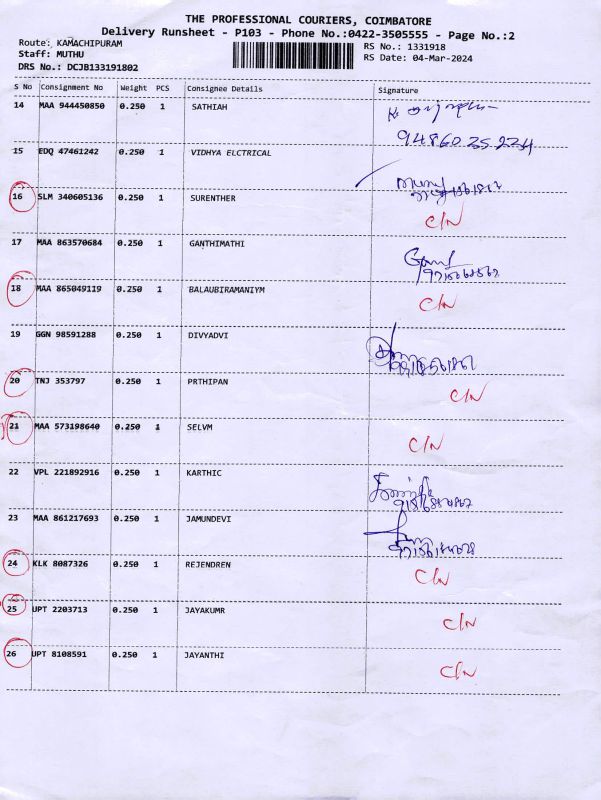 THE PROFESSIONAL COURIERS, COIMBATORE
Delivery Runsheet - P103 - Phone No.:0422-3505555 - Page No.:2
Route: KAMACHIPURAM
RS No.: 1331918
Staff: MUTHU
RS Date: 04-Mar-2024
DRS No.: DCJB133191802
S No Consignment No Weight PCS Consignee Details Signature
14 MAA 944450850 0.250 1 SATHIAH
94860 25 224
15 EDQ 47461242 0.250 1 VIDHYA ELCTRICAL
16 SLM 340605136 0.250 1 SURENTHER
C/N
17 MAA 863570684 0.250 1 GANTHIMATHI
18 MAA 865049119 0.250 1 BALAUBIRAMANIYM
C/N
19 GGN 98591288 0.250 1 DIVYADVI
20 TNJ 353797 0.250 1 PRTHIPAN
C/N
21 MAA 573198640 0.250 1 SELVM
C/N
22 VPL 221892916 0.250 1 KARTHIC
23 MAA 861217693 0.250 1 JAMUNDEVI
24 KLK 8087326 0.250 1 REJENDREN
C/N
25 UPT 2203713 0.250 1 JAYAKUMR
C/N
26 UPT 8108591 0.250 1 JAYANTHI
C/N